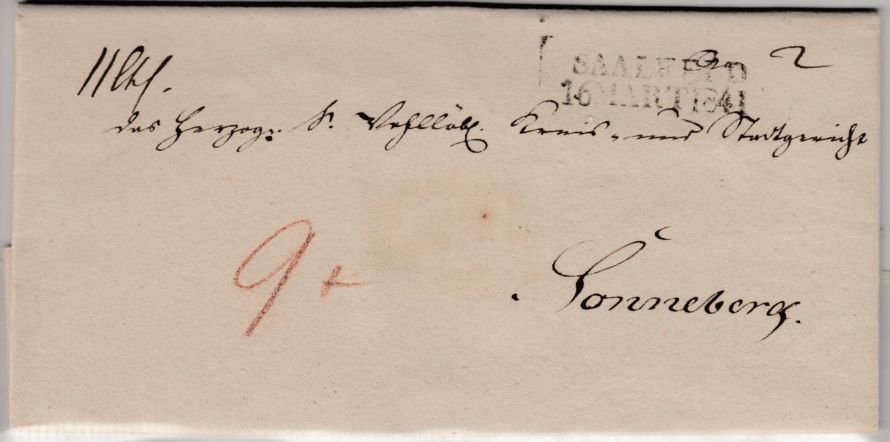 An 2
SAALFELD
16 MART 1841
das Herzogl. S. Wohllöbl. Kreis- und Stadtgericht
9 +
Sonneberg.